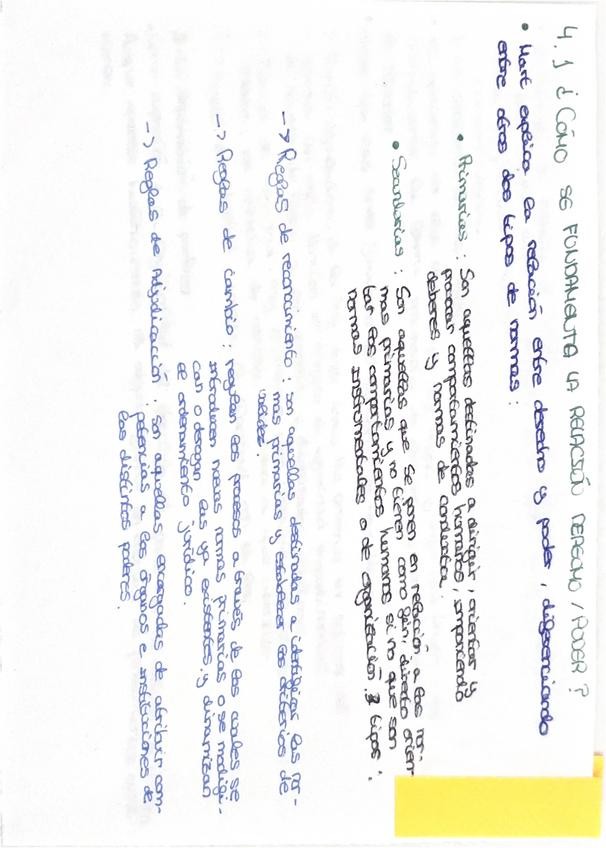 4.1 ¿CÓMO SE FUNDAMENTA LA RELACIÓN DERECHO/PODER?
• Hart explica la relación entre derecho y poder, diferenciando
entre otros dos tipos de normas:
• Primarias: Son aquellas destinadas a dirigir, orientar y
provocar comportamientos humanos, imponiendo
deberes y normas de conducta.
• Secundarias: Son aquellas que se ponen en relación a las nor-
mas primarias y no tienen como fin directo orien-
tar los comportamientos humanos si no que son
normas instrumentales o de organización. 3 tipos:
-> Reglas de reconocimiento: son aquellas destinadas a identificar las nor-
mas primarias y establecer los criterios de
validez.
-> Reglas de cambio: reglan los procesos a través de los cuales se
introducen nuevas normas primarias o se modifi-
can o derogan las ya existentes y dinamizan
el ordenamiento jurídico.
-> Reglas de Adjudicación: son aquellas encargadas de atribuir com-
petencias a los órganos e instituciones de
los distintos poderes.